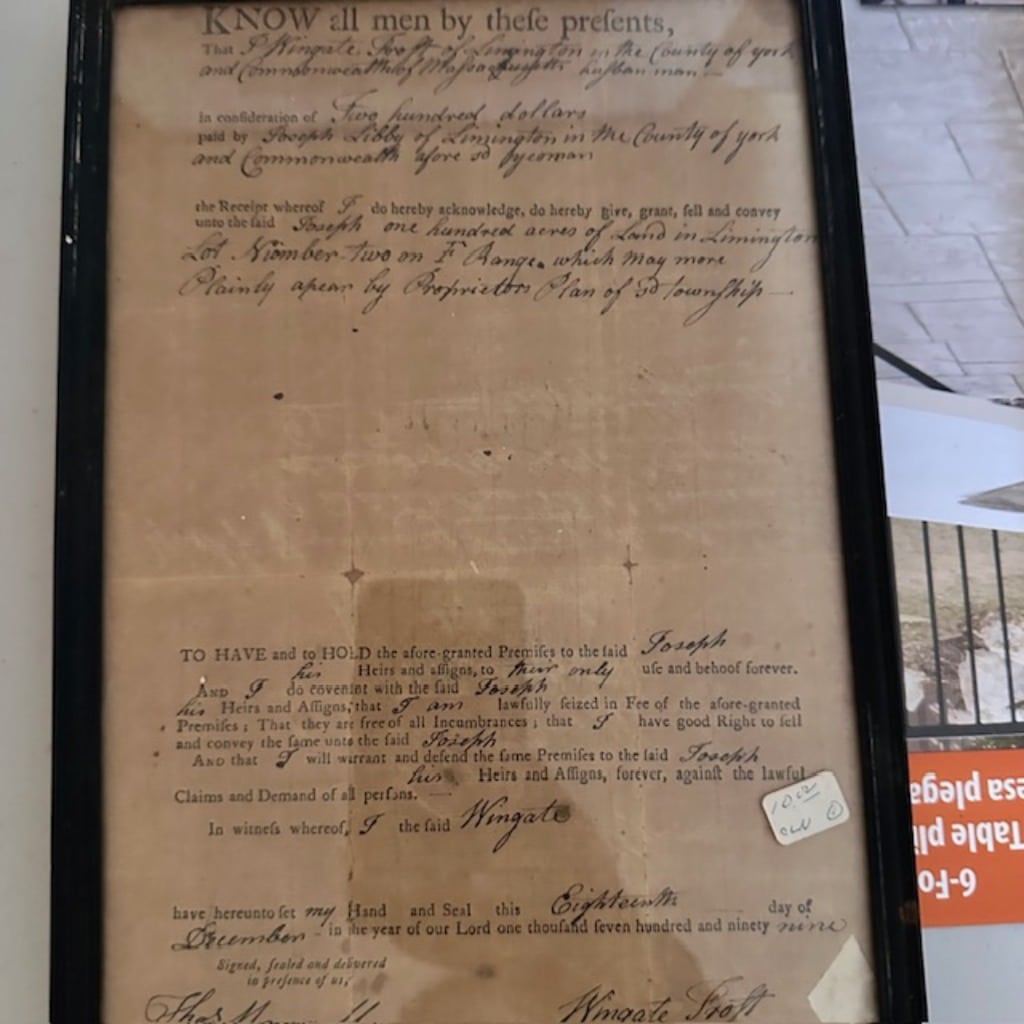 KNOW all men by theſe preſents,
That I Wingate Frost of Limington in the County of york
and Commonwealth of Massachusetts husbanman
in conſideration of Two hundred dollars
paid by Joseph Libby of Limington in the County of york
and Commonwealth afore sd yeoman
the Receipt whereof I do hereby acknowledge, do hereby give, grant, ſell and convey
unto the ſaid Joseph one hundred acres of Land in Limington
Lot Number two on F Range which may more
Plainly apear by Proprietors Plan of sd township
TO HAVE and to HOLD the afore-granted Premiſes to the ſaid Joseph
his Heirs and aſſigns, to their only uſe and behoof forever.
AND I do covenant with the ſaid Joseph
his Heirs and Aſſigns, that I am lawfully ſeized in Fee of the afore-granted
Premiſes; That they are free of all Incumbrances; that I have good Right to ſell
and convey the ſame unto the ſaid Joseph
AND that I will warrant and defend the ſame Premiſes to the ſaid Joseph
his Heirs and Aſſigns, forever, againſt the lawful
Claims and Demand of all perſons.
In witneſs whereof, I the ſaid Wingate
have hereunto ſet my Hand and Seal this Eighteenth day of
December in the year of our Lord one thouſand ſeven hundred and ninety nine
Signed, ſealed and delivered
in preſence of us,
Thos
Wingate Frost
10.00
esa plega
Table pli
6-Fo